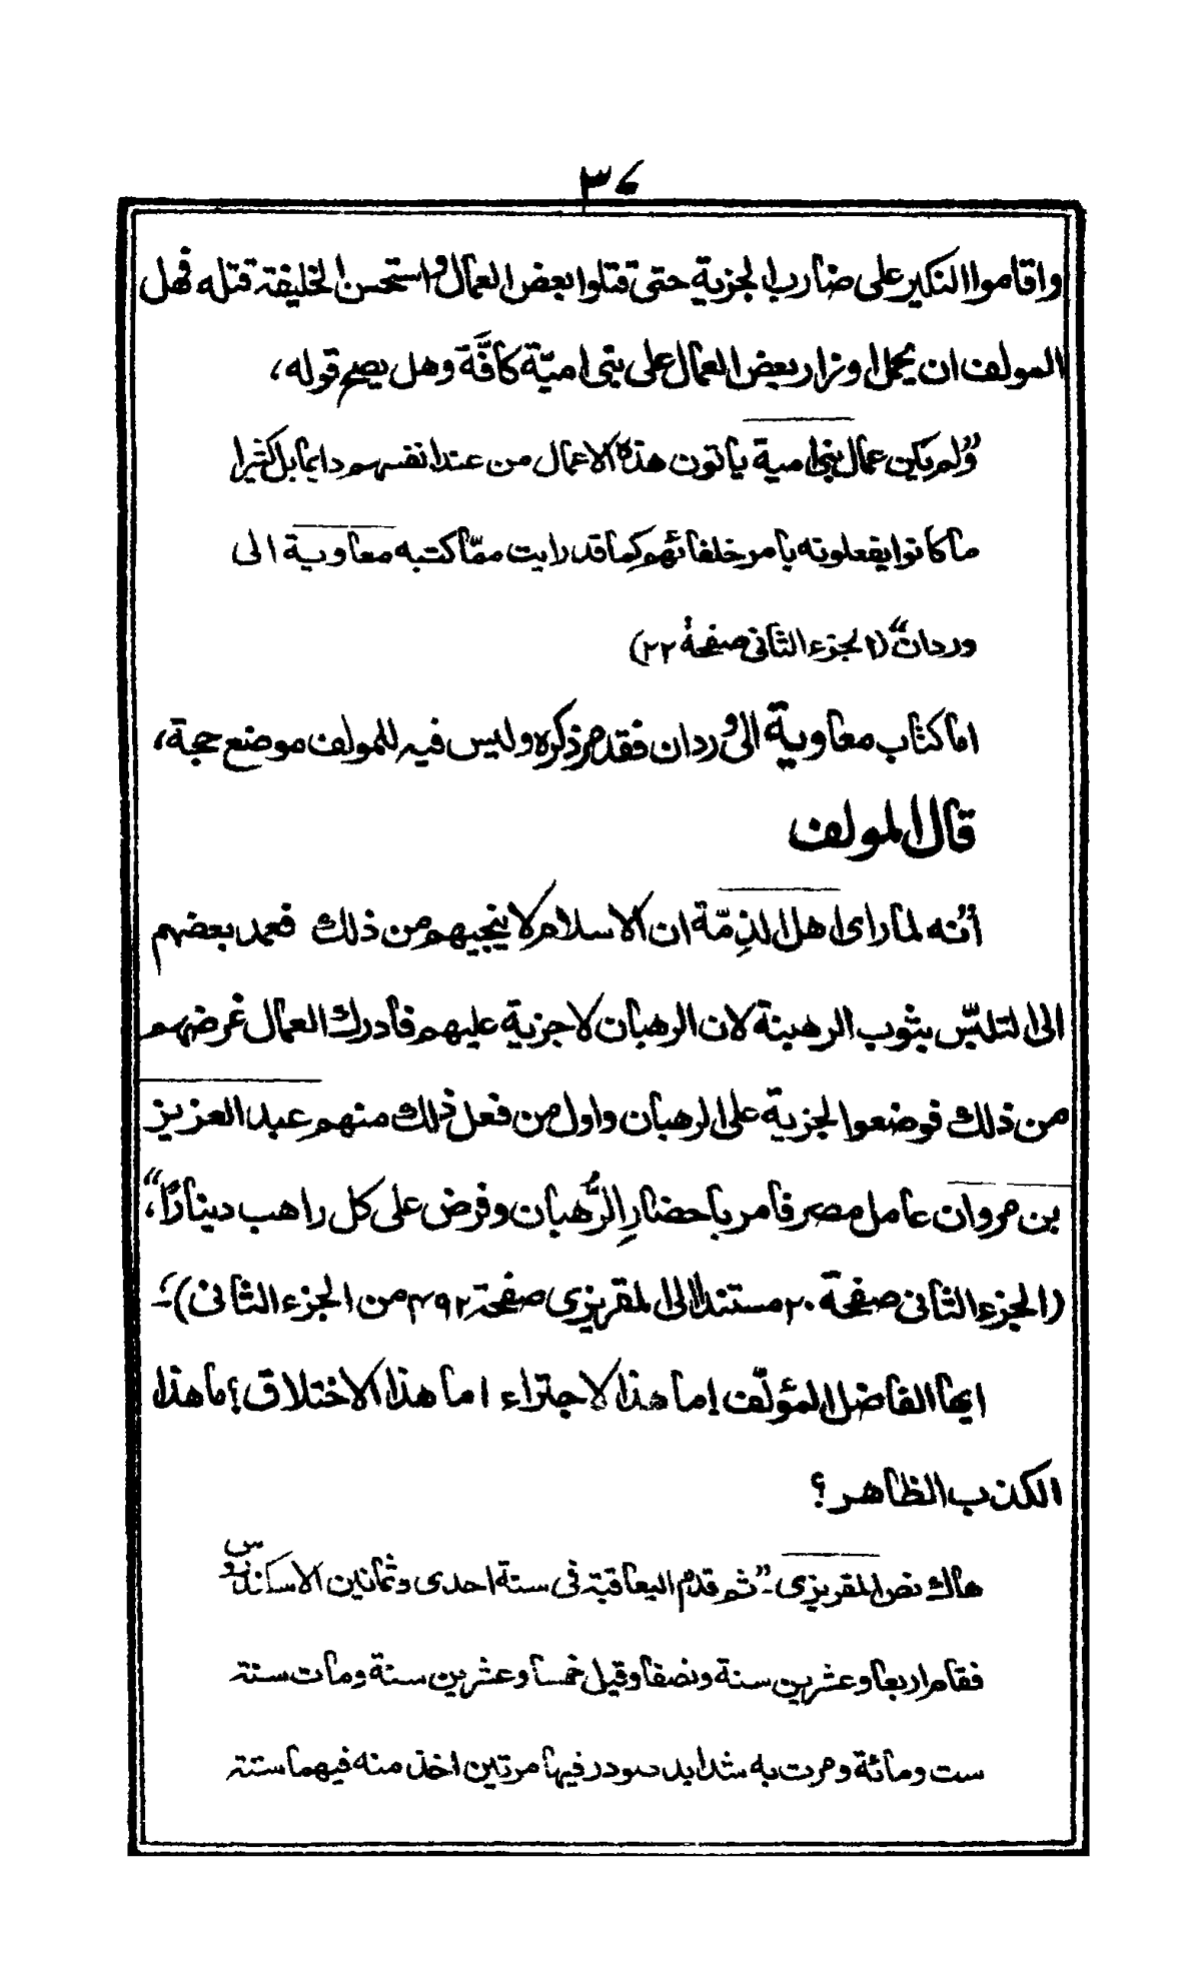 ٣٤
واقاموا النكير على ضارب الجزية حتى قتلوا بعض العمال واستحسن الخليفة قتله فهل
المولف ان يحمل اوزار بعض العمال على بنى اميّة كافَّة وهل يصح قوله،
”ولم يكن عمال بنى امية ياتون هذه الاعمال من عند انفسهم دايما بل كثيرا
ما كانوا يفعلونه بامر خلفائهم كما قد رايت ممّا كتبه معاوية الى
وردان“ (الجزء الثانى صفحة ٢٢)
اما كتاب معاوية الى وردان فقد مر ذكره وليس فيه للمولف موضع حجة،
قال المولف
”أنه لما راى اهل الذِمّة ان الاسلام لا ينجيهم من ذلك فعمد بعضهم
الى التلبّس بثوب الرهبنة لان الرهبان لا جزية عليهم فادرك العمال غرضهم
من ذلك فوضعوا الجزية على الرهبان واول من فعل ذلك منهم عبد العزيز
بن مروان عامل مصر فامر باحضارِ الرُّهبان وفرض على كل راهب دينارًا“،
(الجزء الثانى صفحة ٢٠ مستندا الى المقريزى صفحة ٤٩٢ من الجزء الثانى)؛-
ايها الفاضل المؤلّف! ما هذا الاجتراء! ما هذا الاختلاق؛ ما هذا
الكذب الظاهر؟
هاك نص المقريزى-”ثم قدم اليعاقبة فى سنة احدى وثمانين الاسكندروس
فقام اربعا وعشرين سنة ونصفا وقيل خمسا وعشرين سنة ومات سنة
ست ومائة ومرت به شدايد صودر فيها مرتين اخذ منه فيهما ستة